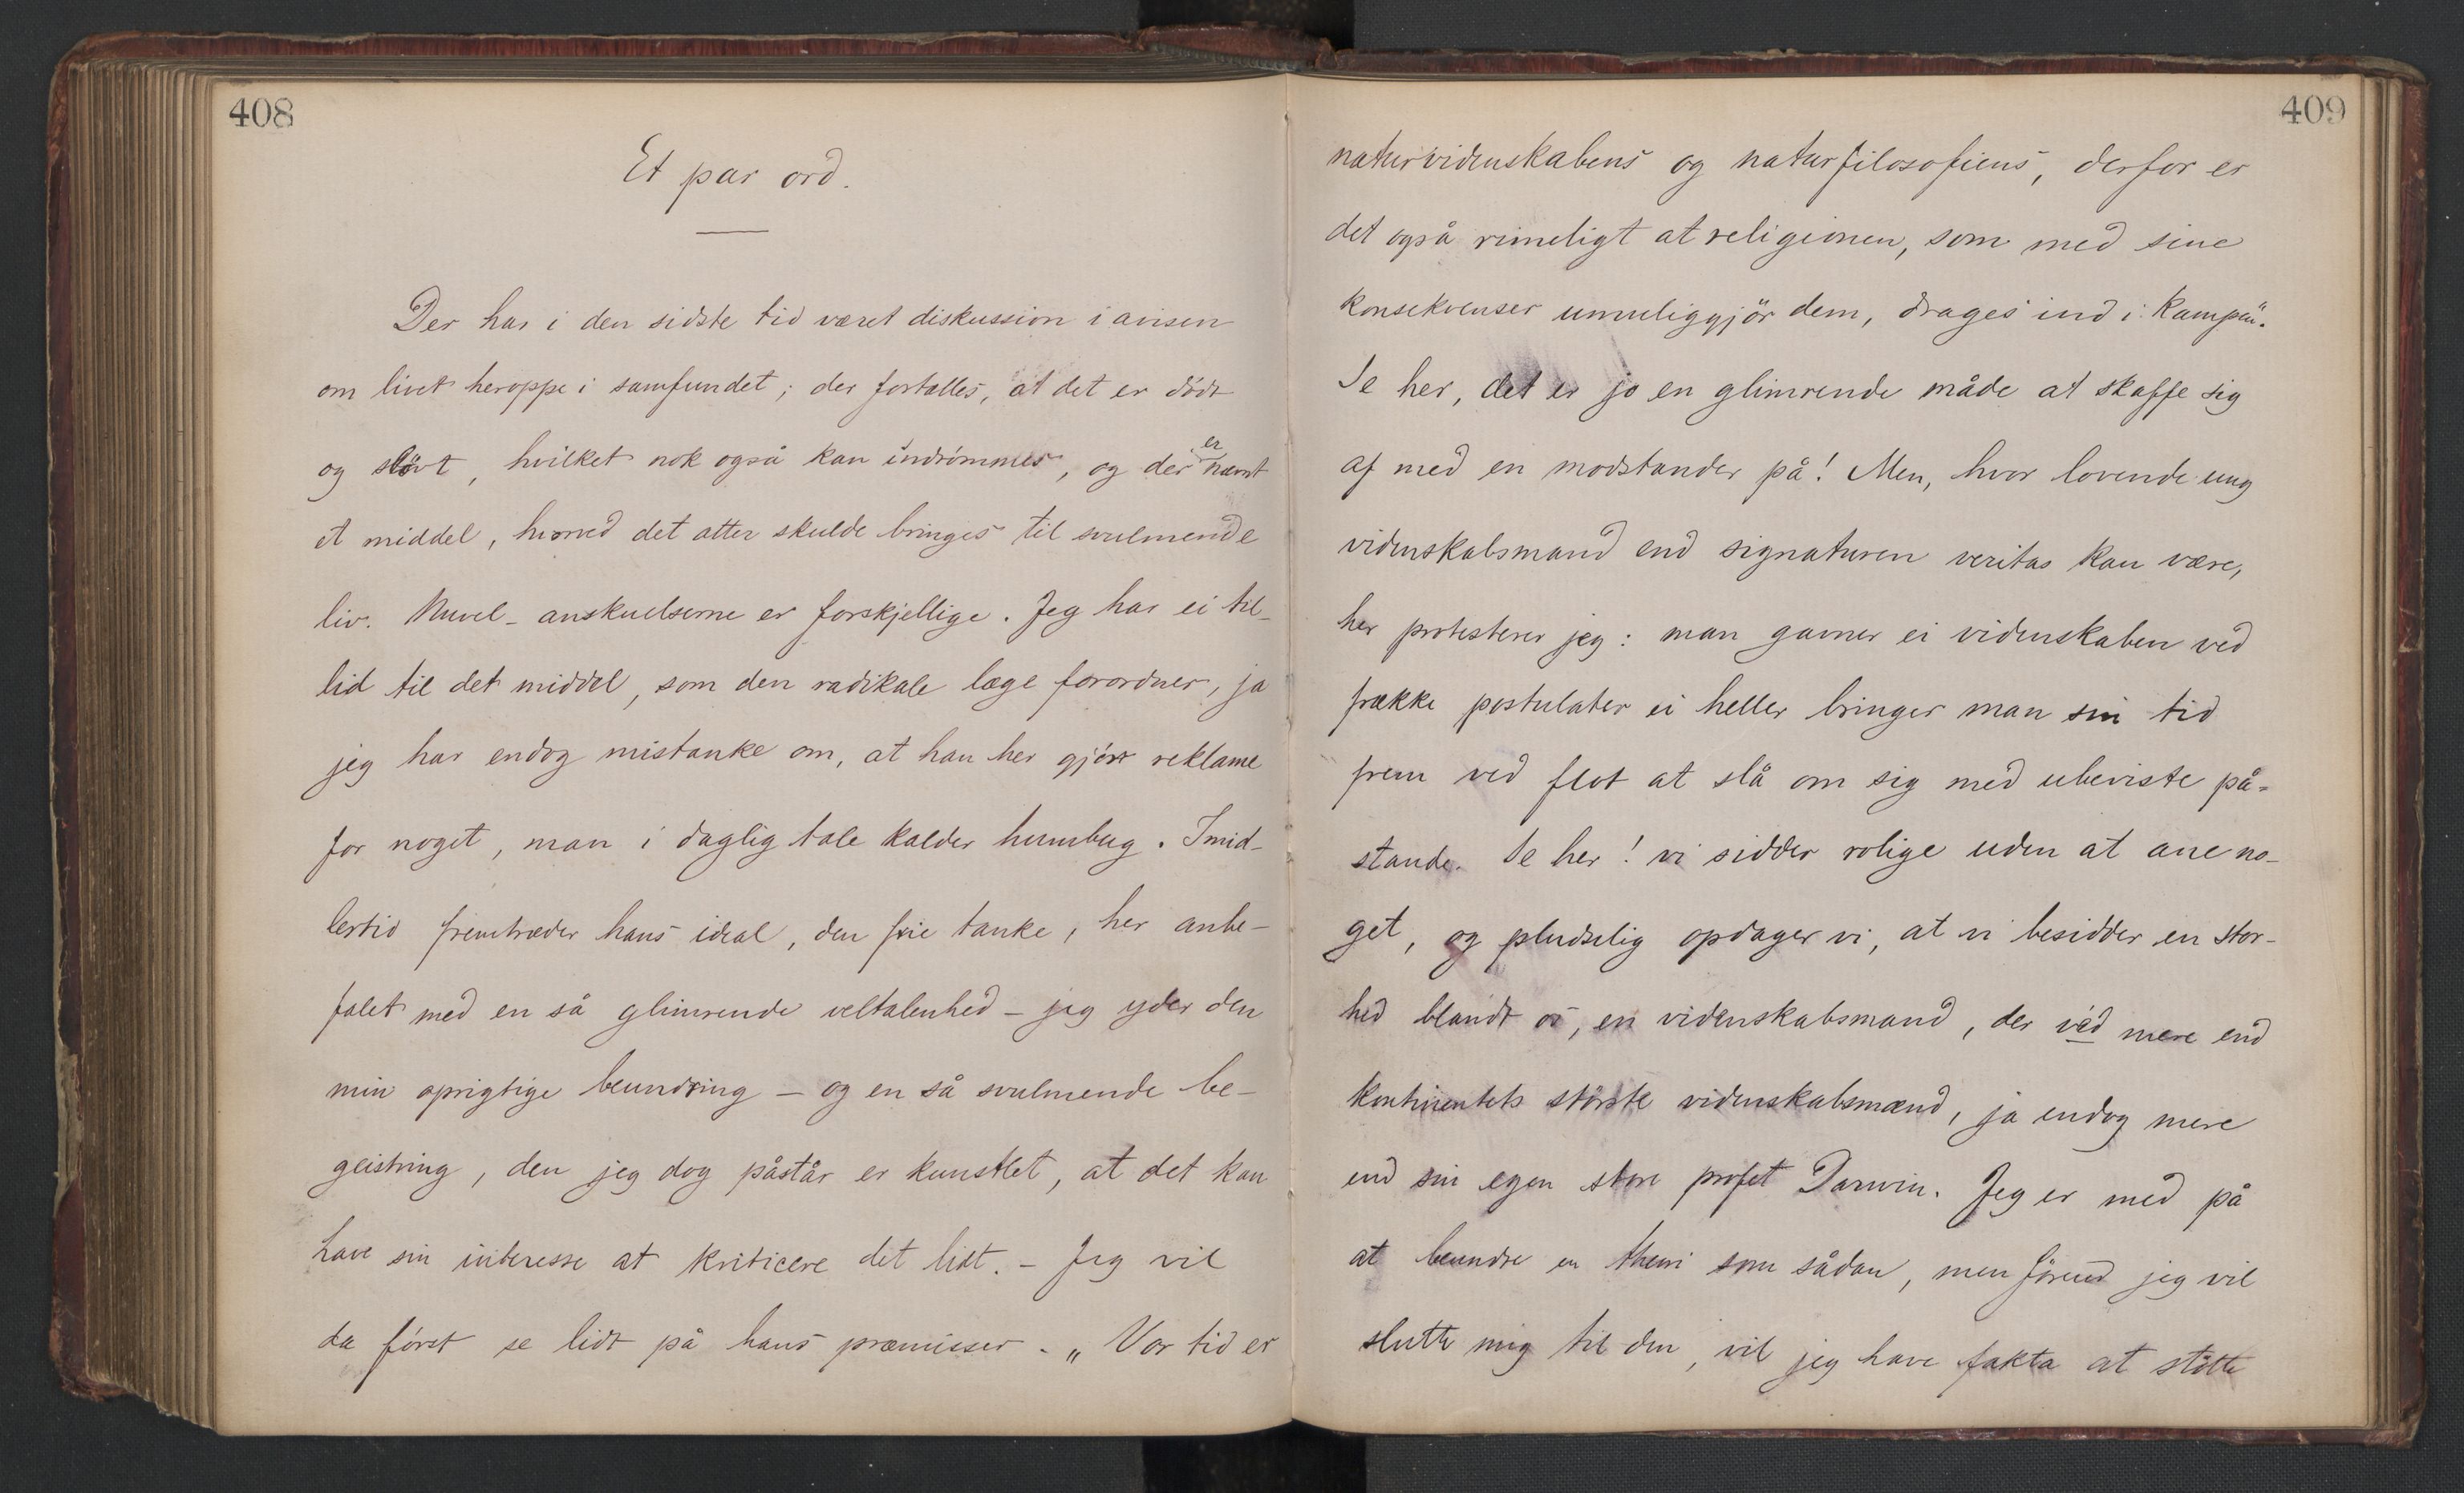 408
Et par ord.
Der har i den sidste tid været diskussion i avisen
om livet heroppe i samfundet; der fortælles, at det er dödt
og slövt, hvilket nok også kan indrömmes, og der er nævnt
et middel, hvorved det atter skulde bringes til svulmende
liv. Nuvel - anskuelserne er forskjellige. Jeg har ei til-
lid til det middel, som den radikale læge forordner, ja
jeg har endog mistanke om, at han her gjör reklame
for noget, man i daglig tale kalder humbug. Imid-
lertid fremtræder hans ideal, den frie tanke, her anbe-
falet med en så glimrende veltalenhed - jeg yder den
min oprigtige beundring - og en så svulmende be-
geistring, den jeg dog påstår er kunstlet, at det kan
have sin interesse at kriticere det lidt. - Jeg vil
da först se lidt på hans præmisser. „Vor tid er
409
naturvidenskabens og naturfilosofiens, derfor er
det også rimeligt at religionen, som med sine
konsekvenser umuliggjör dem, drages ind i kampen".
Se her, det er jo en glimrende måde at skaffe sig
af med en modstander på! Men, hvor lovende ung
videnskabsmand end signaturen veritas kan være,
her protesterer jeg: man gavner ei videnskaben ved
frække postulater ei heller bringer man sin tid
frem ved flot at slå om sig med ubeviste på-
stande. Se her! vi sidder rolige uden at ane no-
get, og pludselig opdager vi, at vi besidder en stor-
hed blandt os, en videnskabsmand, der véd mere end
kontinentets störste videnskabsmænd, ja endog mere
end sin egen store profet Darwin. Jeg er med på
at beundre en theori som sådan, men förend jeg vil
slutte mig til den, vil jeg have fakta at stötte